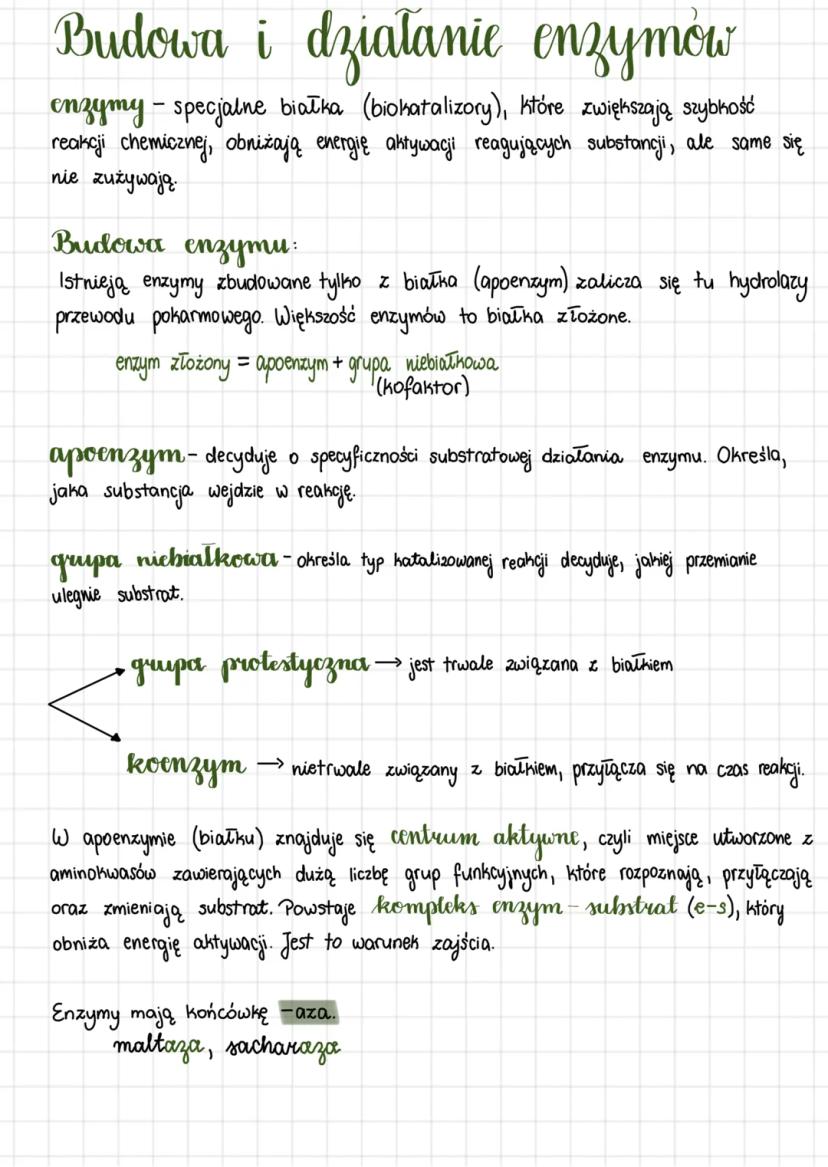 Budowa i działanie enzymów
enzymy - specjalne białka (biokatalizory), które zwiększają szybkość
reakcji chemicznej, obniżają energię aktywacji reagujących substancji, ale same się
nie zużywają.
Budowa enzymu:
Istnieją enzymy zbudowane tylko z białka (apoenzym) zalicza się tu hydrolazy
przewodu pokarmowego. Większość enzymów to białka złożone.
enzym złożony = apoenzym + grupa niebiałkowa
(kofaktor)
apoenzym - decyduje o specyficzności substratowej działania enzymu. Określa,
jaka substancja wejdzie w reakcję.
grupa niebiałkowa - określa typ katalizowanej reakcji decyduje, jakiej przemianie
ulegnie substrat.
grupa protestyczna → jest trwale związana z białkiem
koenzym → nietrwale związany z białkiem, przyłącza się na czas reakcji.
W apoenzymie (białku) znajduje się centrum aktywne, czyli miejsce utworzone z
aminokwasów zawierających dużą liczbę grup funkcyjnych, które rozpoznają, przyłączają
oraz zmieniają substrat. Powstaje kompleks enzym - substrat (e-s), który
obniża energię aktywacji. Jest to warunek zajścia.
Enzymy mają końcówkę -aza.
maltaza, sacharaza